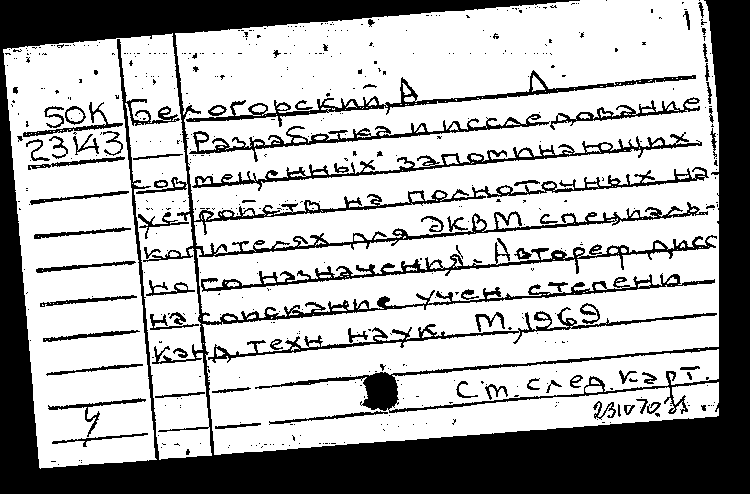 50К Белогорский, А Л
23143 Разработка и исследование
совмещенных запоминающих
устройств на полноточных на-
копителях для ЭКВМ специаль-
ного назначения. Автореф. дисс
на соискание учен. степени
канд. техн наук. М., 1969.
См. след. карт.